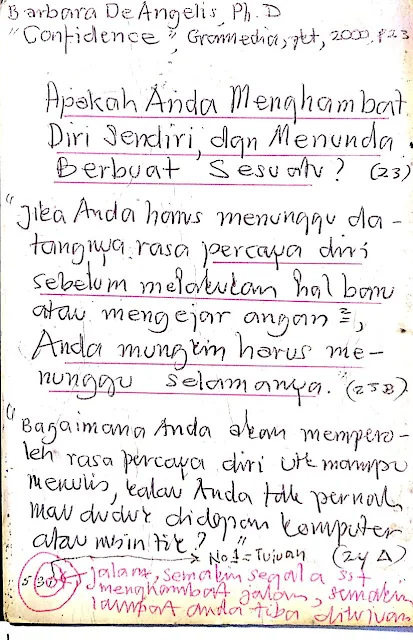 Barbara De Angelis, Ph.D
"Confidence", Gramedia, jkt, 2000, p23
Apakah Anda Menghambat
Diri Sendiri, dan Menunda
Berbuat Sesuatu? (23)
"Jika Anda harus menunggu da-
tangnya rasa percaya diri
sebelum melakukan hal baru
atau mengejar angan²,
Anda mungkin harus me-
nunggu selamanya. (25B)
"Bagaimana Anda akan mempero-
leh rasa percaya diri utk mampu
menulis, kalau Anda tdk pernah
mau duduk didepan komputer
atau msin tik?" (24A)
No 1 = Tujuan
jalan, semakin segala sst
menghambat jalan, semakin
lambat anda tiba ditujuan